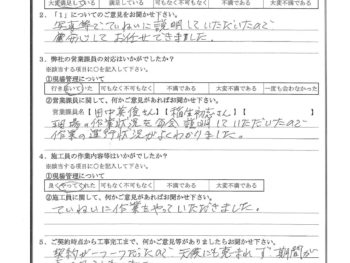 大変満足している 満足している 可も不可もなく 不満である 大変不満である
2.「1」についてのご意見をお聞かせ下さい。
写真等でていねいに説明していただいたので
安心してお任せできました。
3. 弊社の営業課員の対応はいかがでしたか？
※該当する項目に○を記入して下さい。
①現場管理について
行き届いていた 可も不可もなく 不満である 大変不満である 一度も会わなかった
②営業課員に関して、何かご意見があればお聞かせ下さい。
営業課員名【田中英俊さん、稲生初志さん】
現場の作業状況を毎会説明していただいたので
作業の進行状況がよくわかりました。
4. 施工員の作業内容等はいかがでしたか？
※該当する項目に○を記入して下さい。
①現場管理について
良くやってくれた 可も不可もなく 不満である 大変不満である
②施工員に関して、何かご意見があればお聞かせ下さい。
ていねいに作業をやっていただきました。
5. ご契約時点から工事完工まで、何かご意見等がありましたらお聞かせ下さい。
契約が一つ一つだったので 天候にも恵まれず 期間が